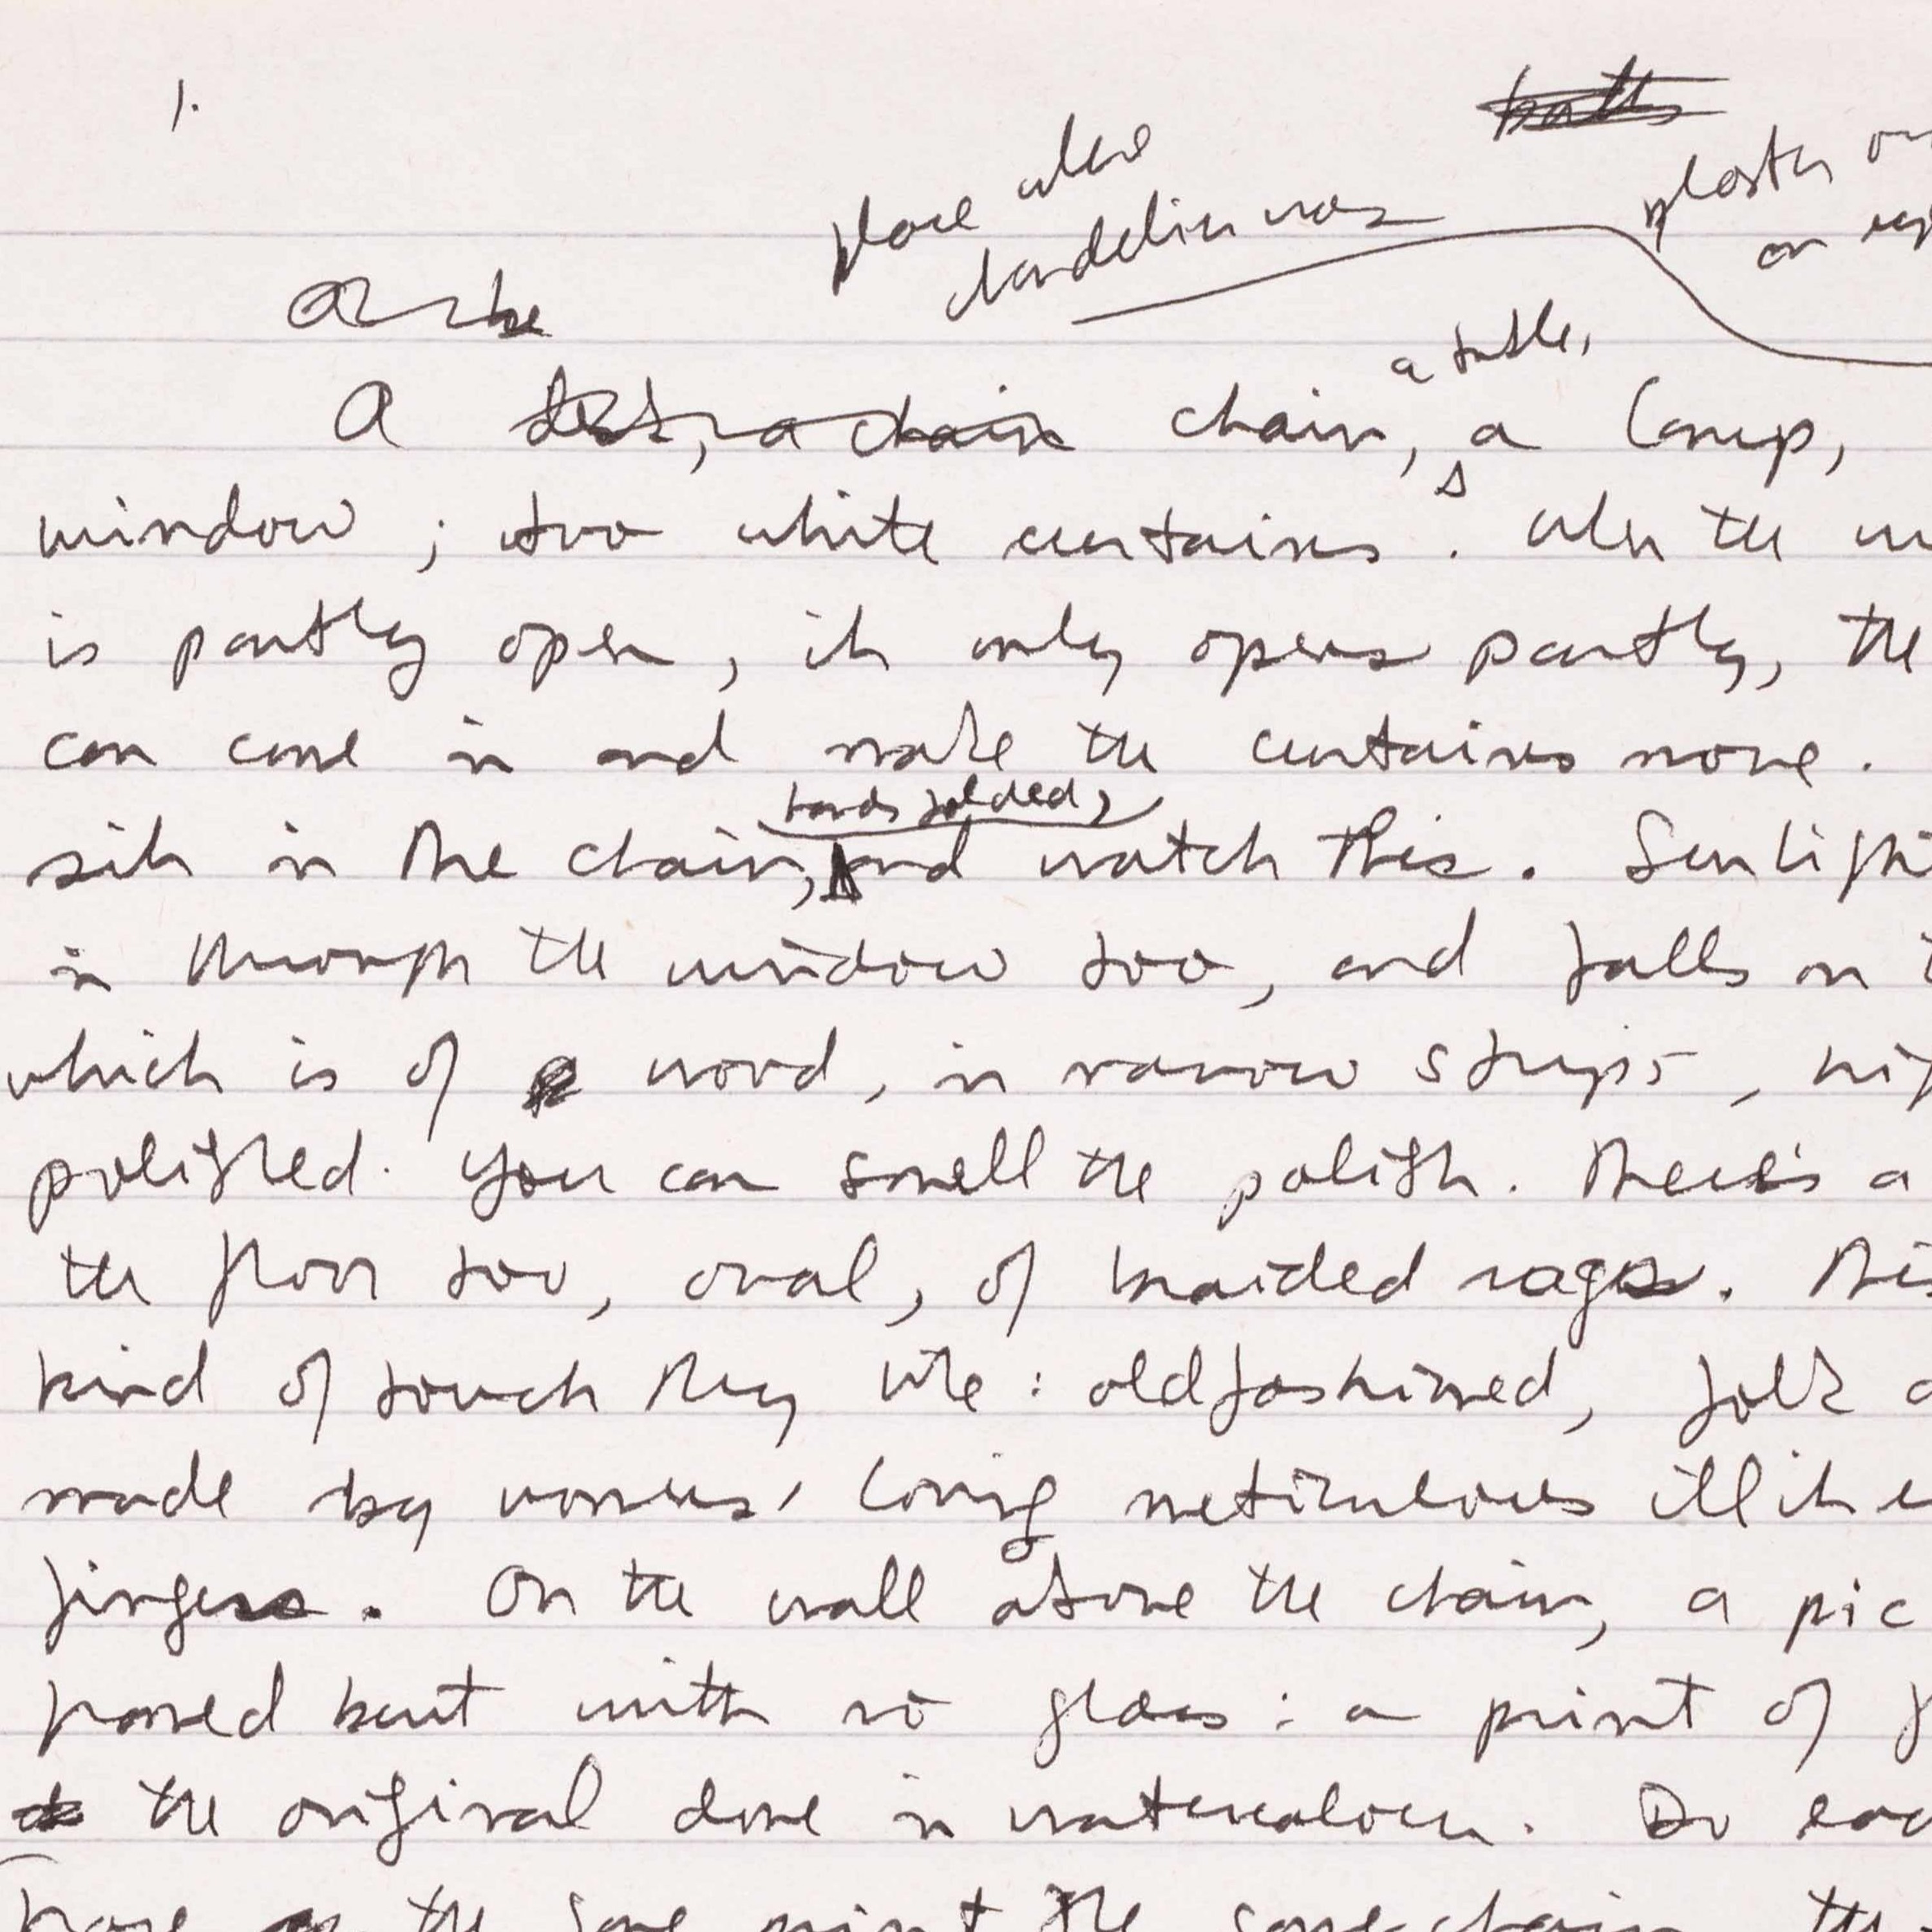 1.
place where
chandelier was
plaster
on
a table,
A desk, a chair chair, a lamp,
window; two white curtains. When the
is partly open, it only opens partly, the
can come in and make the curtains move.
hands folded,
sit in the chair, and watch this. Sunlight
in through the window too, and falls on
which is of wood, in narrow strips,
polished. You can smell the polish. There's a
the floor too, oval, of braided rags.
kind of touch they like: oldfashioned, folk
made by women, loving meticulous
fingers. On the wall above the chair, a pic
framed but with no glass: a print of
the original done in watercolour. Do
the same print the same chair the